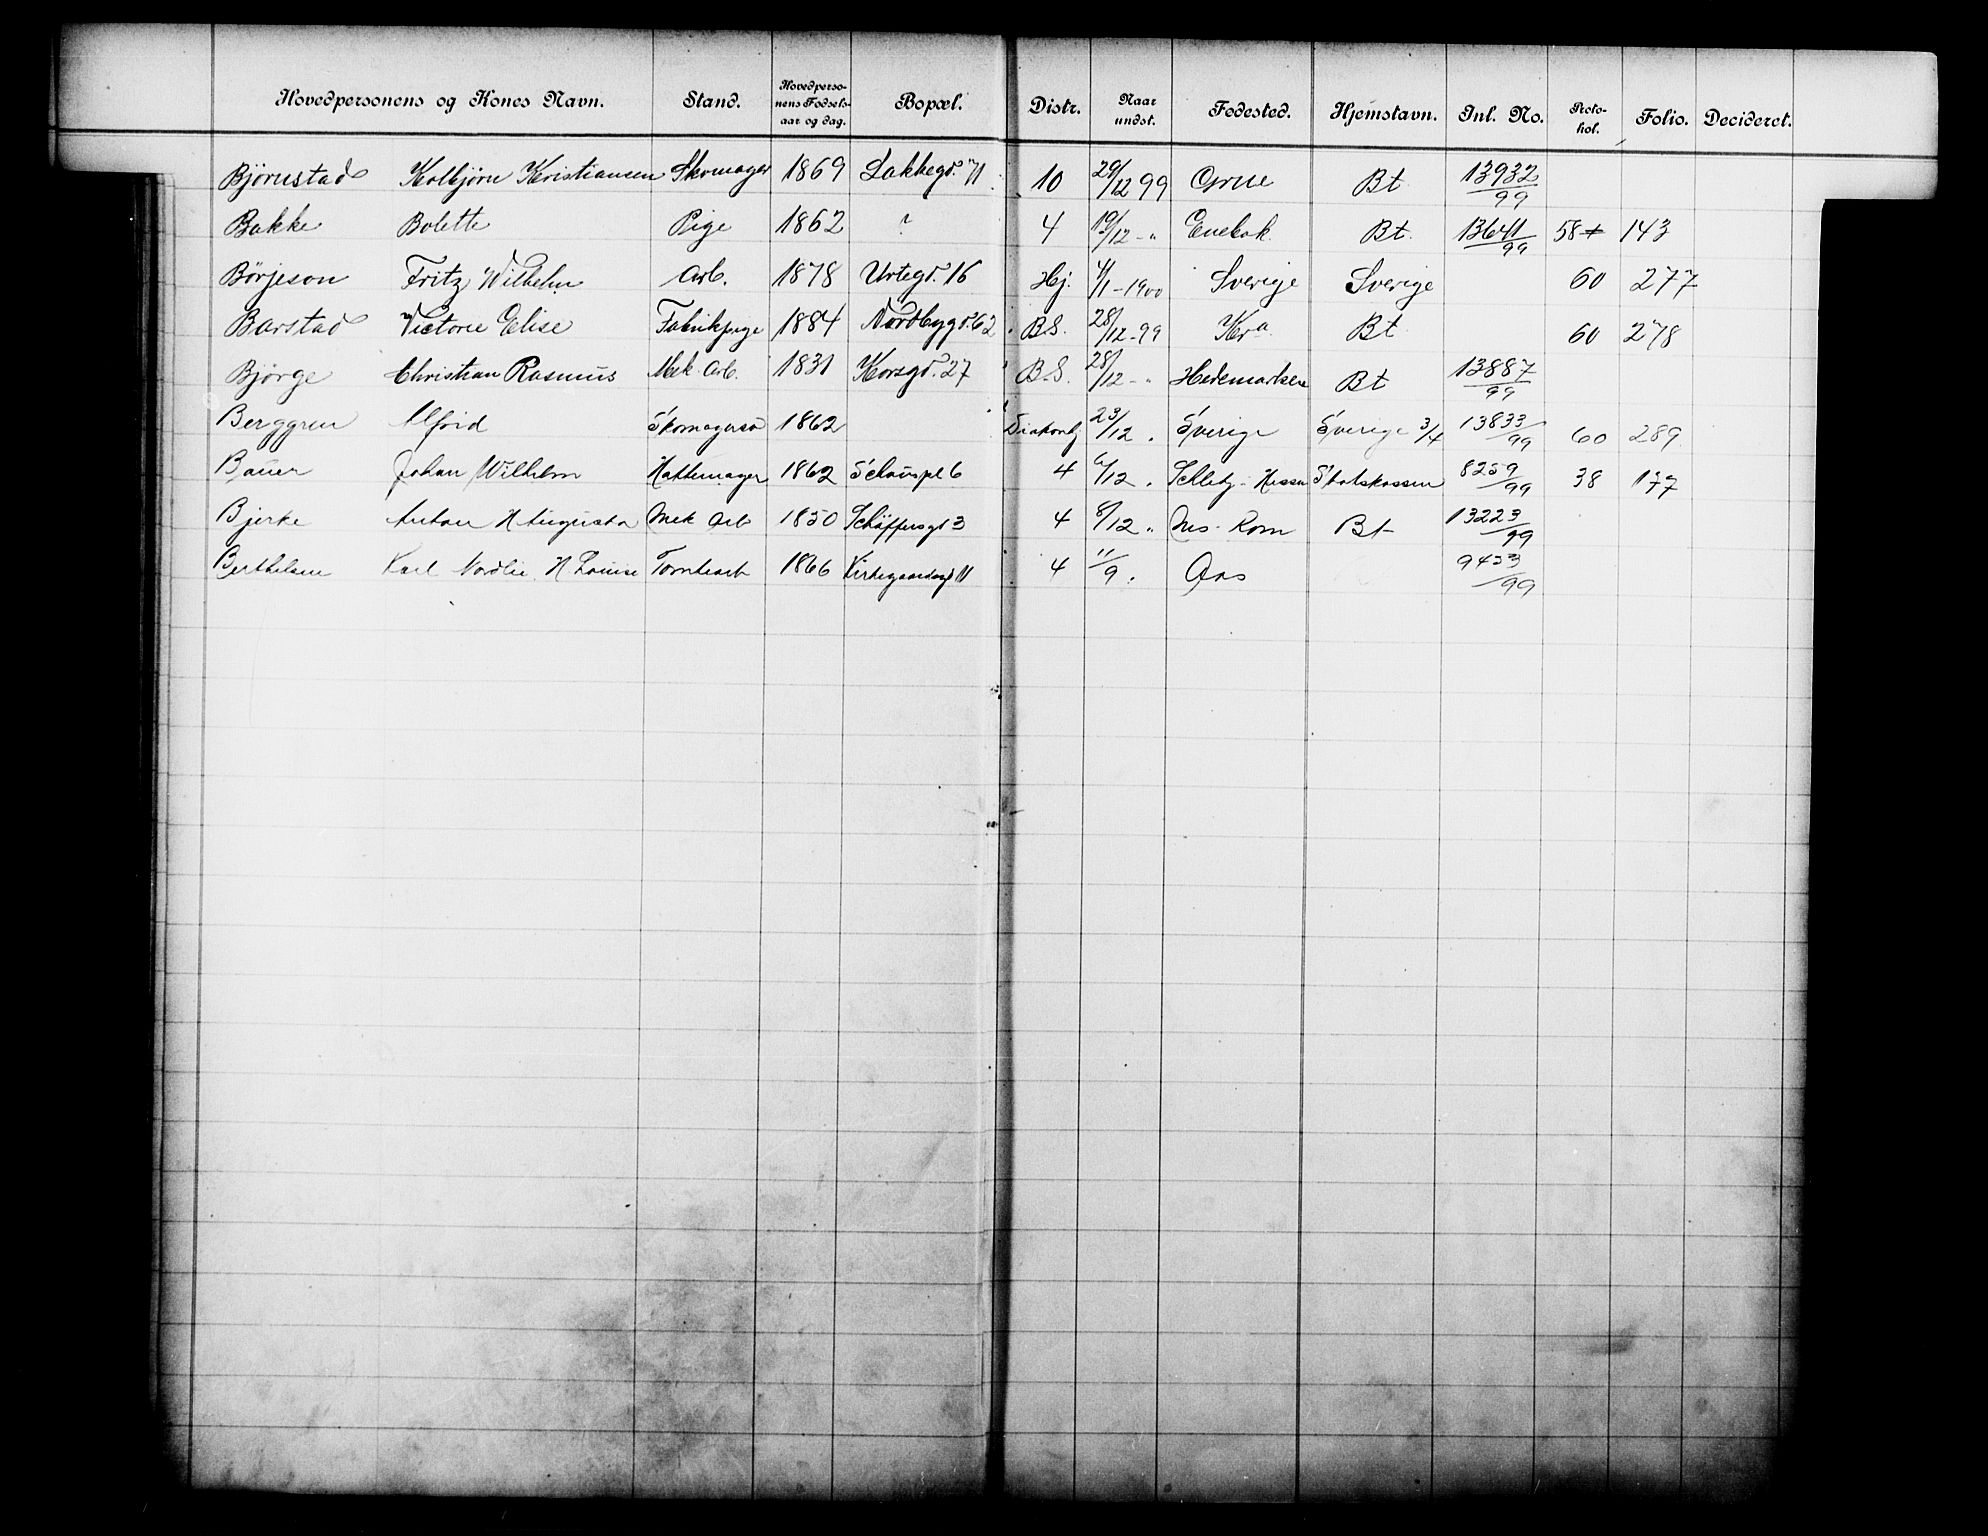 Hovedpersonens og Kones Navn. Stand. Hovedpersonens Fødselsaar og dag. Bopæl. Distr. Naar undst. Fødested. Hjemstavn. Inl. No. Protokol. Folio. Decideret.
Björnstad Kolbjörn Kristiansen Skomager 1869 Lakkegd. 71 10 29/12 99 Grue Bt 13932/99
Bakke Bolette Pige 1862 ? 4 19/12 - " Enebak Bt. 13641/99 58 143
Börjeson Fritz Wilhelm Arb. 1878 Urtegd. 16 Hj. 4/1 - 1900 Sverige Sverige 60 277
Barstad Victorie Elise Fabrikpige 1884 Nordbygd. 62 B.S. 28/12 - 99 Kra. Bt 60 278
Bjørge Christian Rasmus Mek. Arb. 1831 Korsgd. 27 B.S. 28/12 - " Hedemarken Bt 13887/99
Berggren Alfrid 1862 23/12 " Sverige Sverige 3/4 13833/99 60 289
Bauer Johan Wilhelm Hattemager 1862 Schouspl 6 4 6/12 " Hessen Statskassen 8259/99 38 177
Bjerke Anton H Augusta Mek Arb 1850 Schäffersgt 3 4 8/12 " Nes - Rom Bt 13223/99
Berthelsen Karl Nordlie H. Louise Tomtearb 1866 Kirkegaardsgt 11 4 11/9 " Aas 9433/99